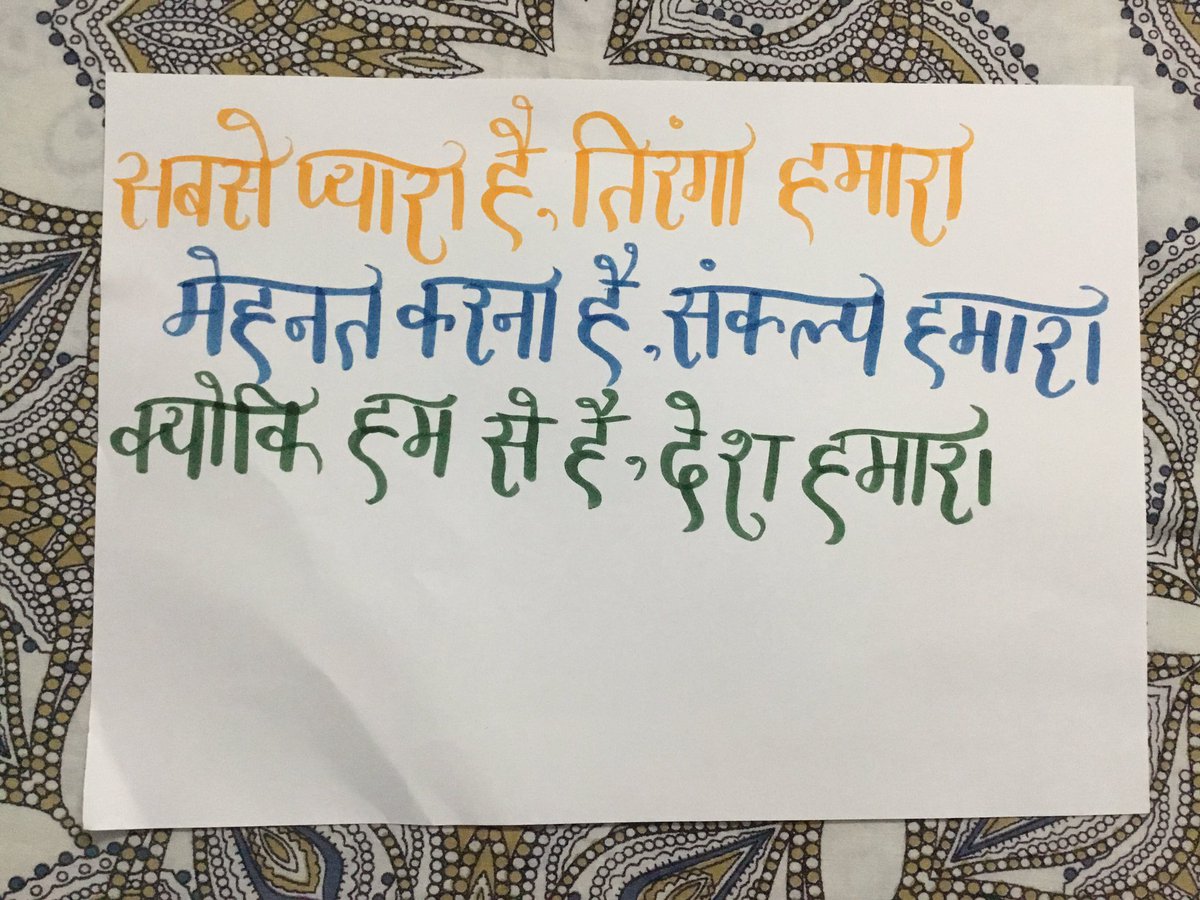 सबसे प्यारा है, तिरंगा हमारा
मेहनत करना है, संकल्प हमारा
क्योकि हम से है, देश हमारा